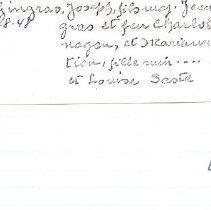 Gingras, Joseph, fils maj. Jean
8-48 gras et feu Charlot
nagan, et Marianne
tien, fille min....
et Louise Sasté